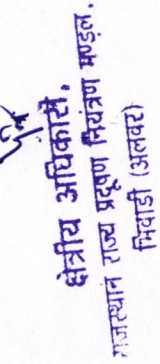 क्षेत्रीय अधिकारी,
राजस्थान राज्य प्रदूषण नियंत्रण मण्डल,
भिवाडी (अलवर)